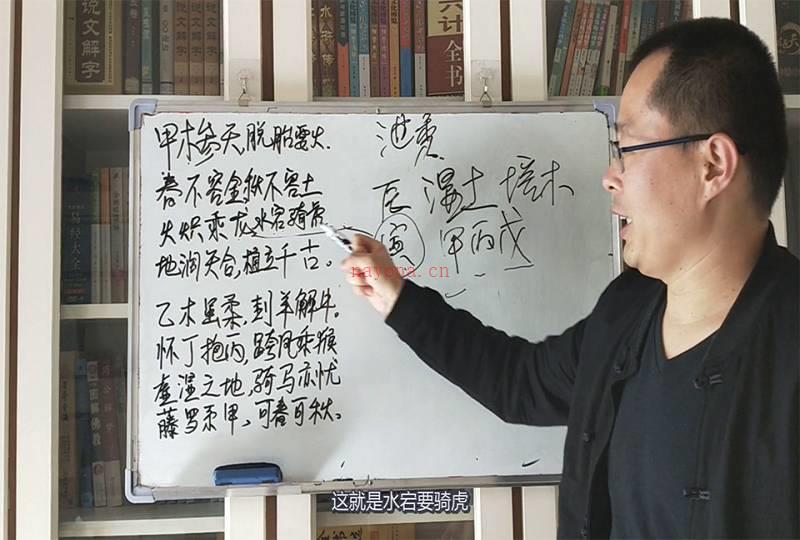 说文解字
水浒传
计
全书
甲木参天,脱胎要火.
春不容金,秋不容土
火炽乘龙,水宕骑虎
地润天合,植立千古。
乙木虽柔,刲羊解牛。
怀丁抱丙,跨凤乘猴
虚湿之地,骑马亦忧
藤罗系甲、可春可秋。
辰 湿土 培木
寅 甲丙戊
nayona.cn
易经大全
图解佛教
这就是水宕要骑虎